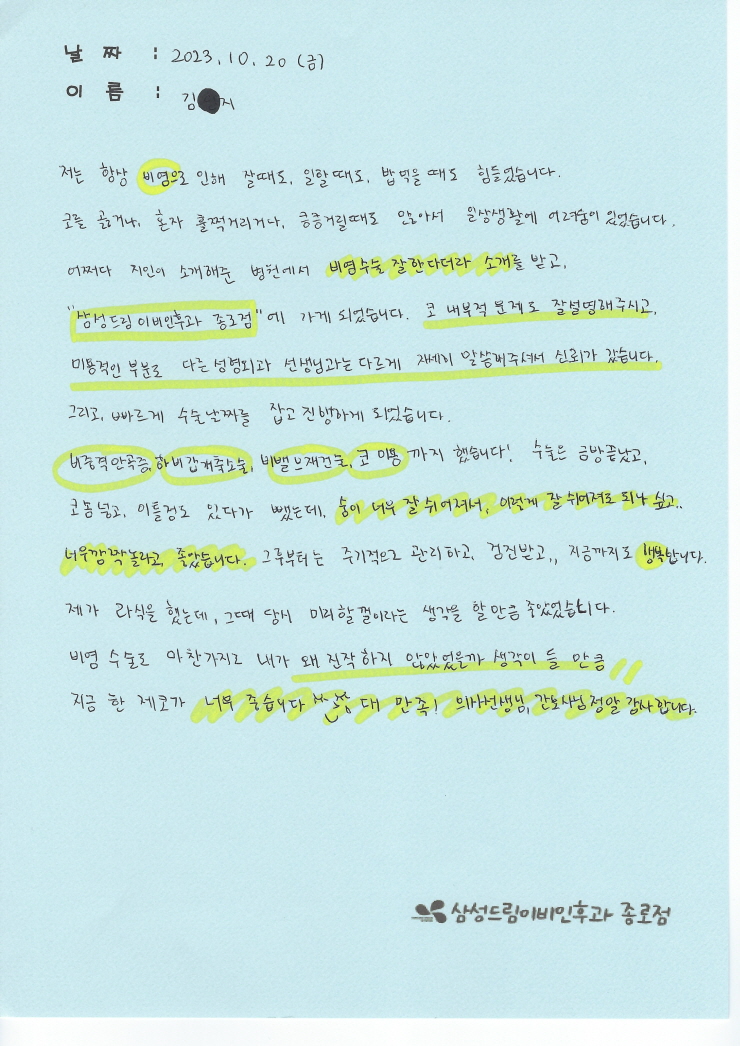 날 짜 : 2023. 10. 20 (금)
이 름 : 김 지
저는 항상 비염으로 인해 잘때도, 일할때도, 밥먹을때도 힘들었습니다.
코를 골거나, 혼자 훌쩍거리거나, 킁킁거릴때도 많아서 일상생활에 어려움이 있었습니다.
어쩌다 지인이 소개해준 병원에서 비염수술 잘한다더라 소개를 받고,
"삼성드림이비인후과 종로점"에 가게 되었습니다. 코 내부적 문제도 잘설명해주시고,
미용적인 부분도 다른 성형외과 선생님과는 다르게 자세히 말씀해주셔서 신뢰가 갔습니다.
그리고, 빠르게 수술날짜를 잡고 진행하게 되었습니다.
비중격만곡증, 하비갑개축소술, 비밸브재건술, 코 미용 까지 했습니다! 수술은 금방끝났고,
코솜넣고, 이틀정도 있다가 뺐는데, 숨이 너무 잘 쉬어져서, 이렇게 잘 쉬어져도 되나 싶고..
너무깜짝놀라고, 좋았습니다. 그후부터는 주기적으로 관리하고, 검진받고,, 지금까지도 행복합니다.
제가 라식을 했는데, 그때 당시 미리할껄이라는 생각을 할만큼 좋았었습니다.
비염 수술도 마찬가지로 내가 왜 진작하지 않았었을까 생각이 들 만큼
지금 한 제코가 너무 좋습니다 ^^ 대 만족! 의사선생님, 간호사님 정말 감사합니다.
삼성드림이비인후과 종로점